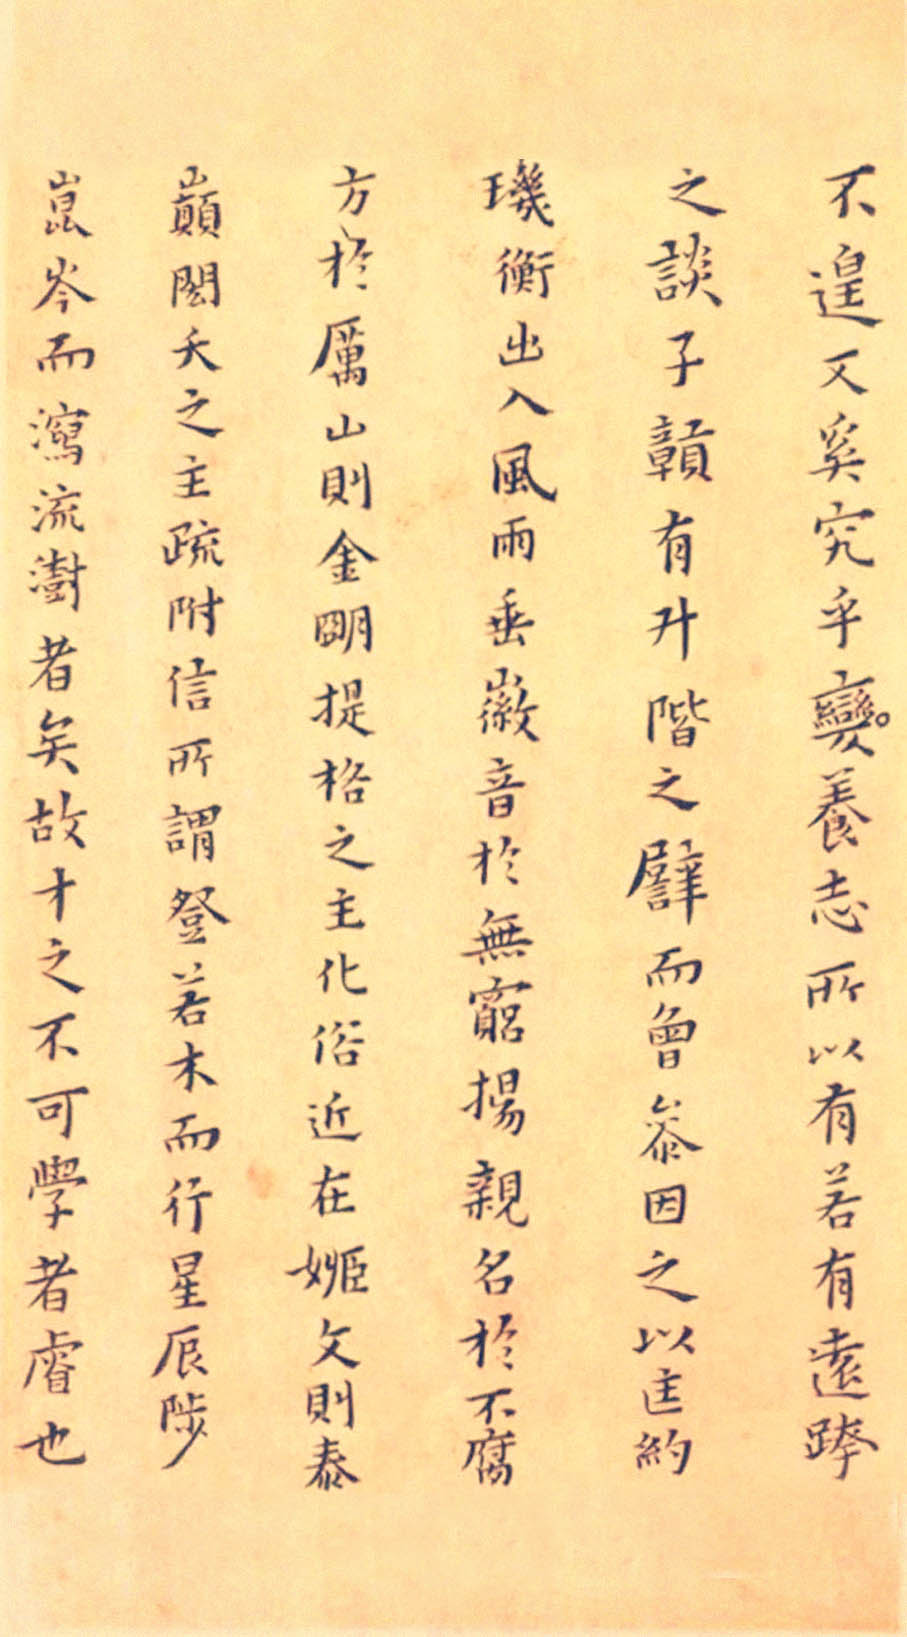 不遑又奚究乎變養志所以有若有遠蹕
之談子贛有升階之譬而曾叅因之以匡約
璣衡出入風雨垂徽音於無窮揚親名於不腐
方於厲山則金朙提格之主化俗近在姬文則泰
巔閎夭之主疏附信所謂登若木而行星辰陟
崑岑而瀉流澍者矣故才之不可學者睿也